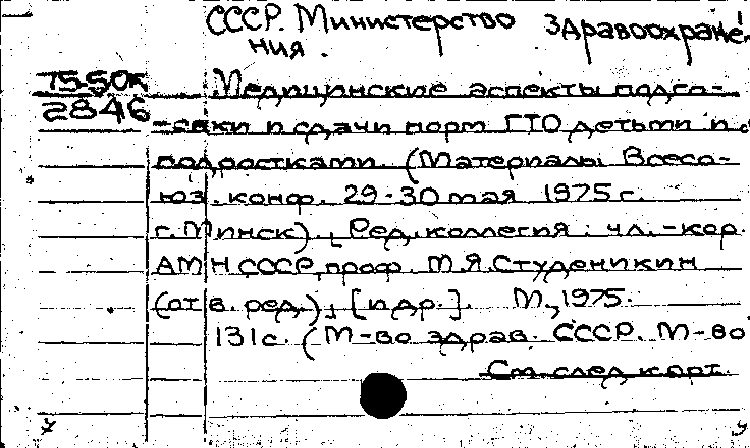 СССР. Министерство здравоохране-
ния.
75-50к
2846
Медицинские аспекты подго-
товки и сдачи норм ГТО детьми и
подростками. (Материалы Всесо-
юз. конф. 29-30 мая 1975 г.
г. Минск). [Ред. коллегия: чл.-кор.
АМН СССР, проф. М.Я. Студеникин
(отв. ред.), [и др.]. М., 1975.
131 с. (М-во здрав. СССР. М-во
См. след. карт.